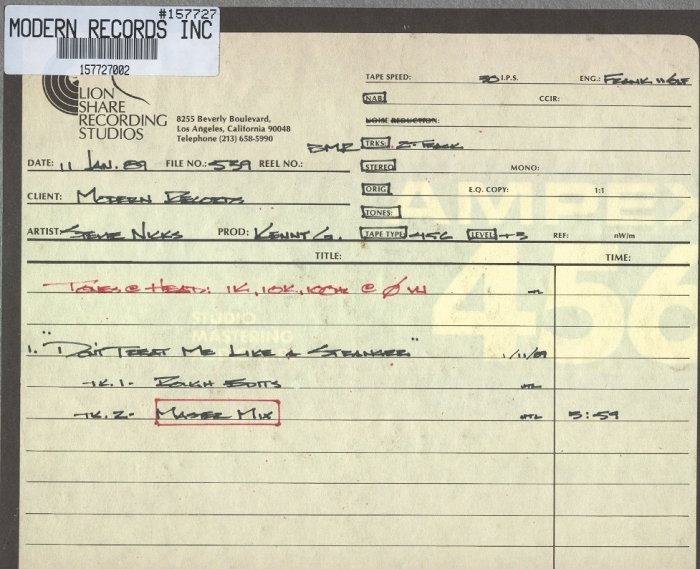 #157727
MODERN RECORDS INC
157727002
LION
SHARE
RECORDING
STUDIOS
8255 Beverly Boulevard,
Los Angeles, California 90048
Telephone (213) 658-5990
TAPE SPEED: 30 I.P.S. ENG.: FRANK
NAB: CCIR:
NOISE REDUCTION:
TRKS: 2-TRACK
DATE: 11 JAN. 89 FILE NO.: 559 REEL NO.:
STEREO MONO:
CLIENT: MODERN RECORDS
ORIG. E.Q. COPY: 1:1
TONES:
ARTIST: STEVIE NICKS PROD: KENNY G. TAPE TYPE: 456 LEVEL: +3 REF: nW/m
AMPEX
456
STUDIO
MASTERING
TITLE: TIME:
TONES @ HEAD: 1K, 10K, 100~ @ Ø VU
1. "DON'T TREAT ME LIKE A STRANGER" 1/11/89
TK.1- ROUGH EDITS
TK.2- MASTER MIX 5:59